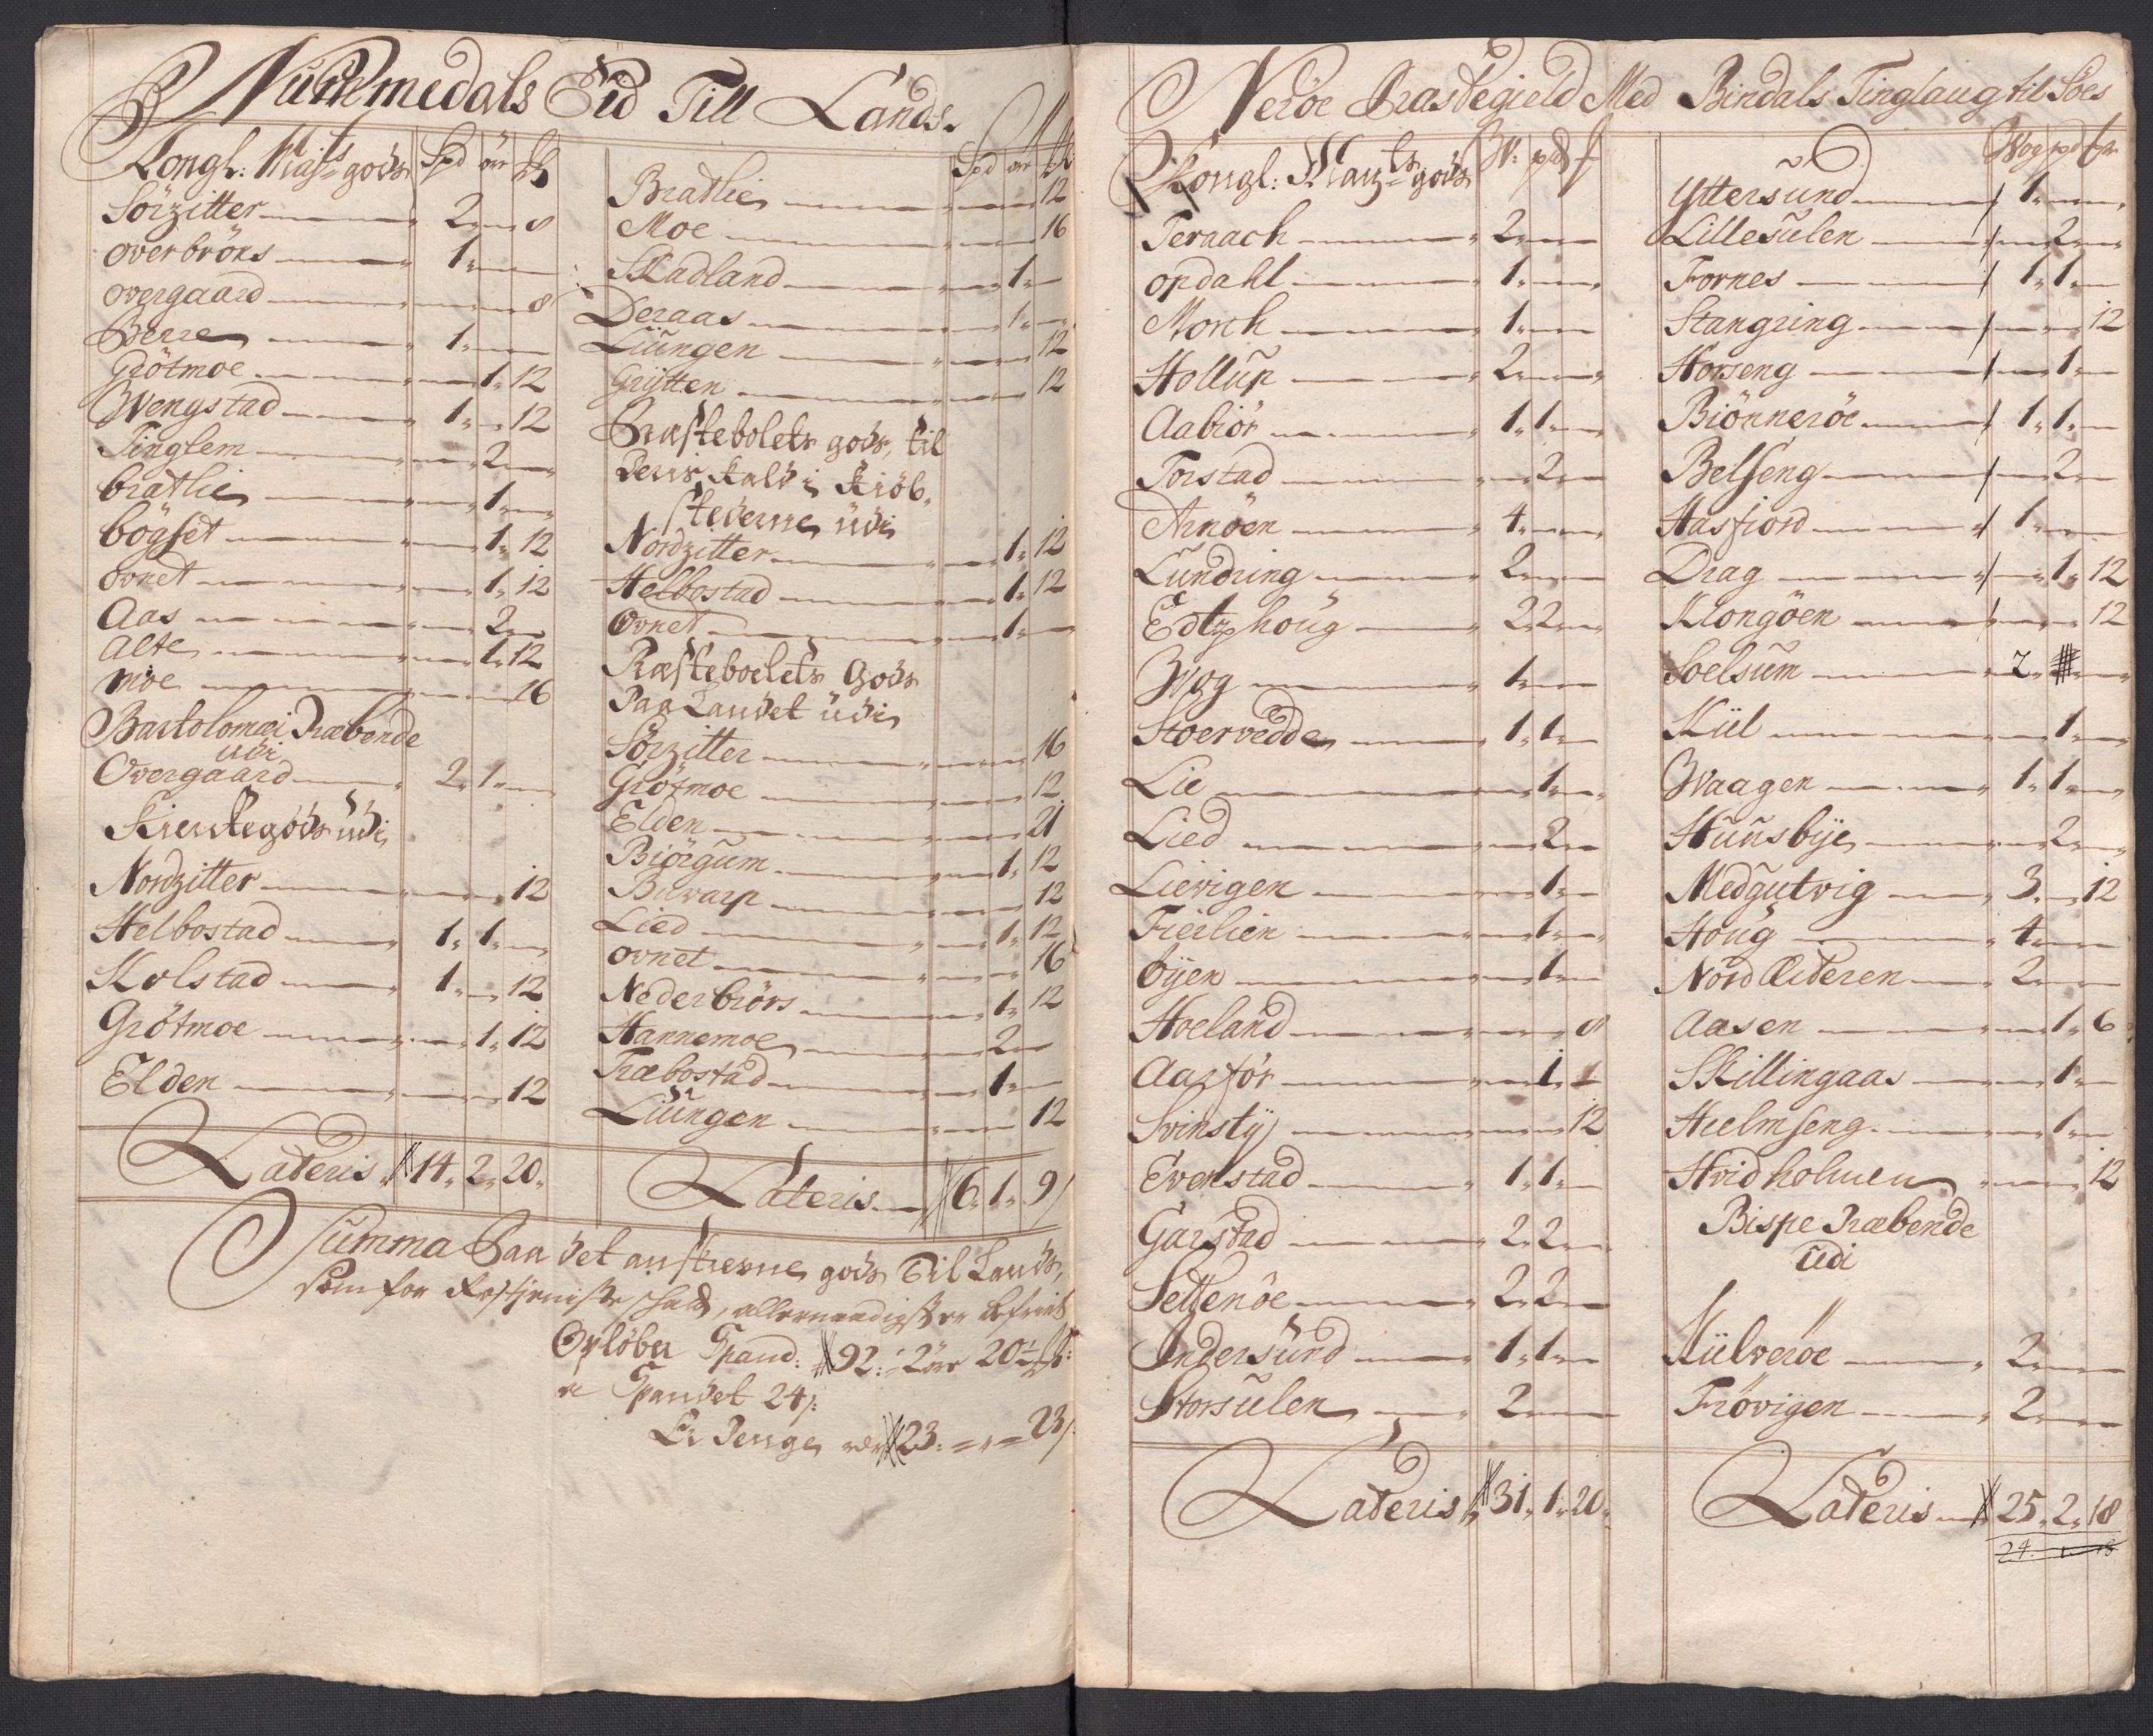 Nummedals Eid Till Lands.
Kongl: Majts godz Spd ör
Sörzitter 2 „ 8
overbröns 1
overgaard 8
Berre 1
Grötmoe 1 „ 12
Wengstad 1 „ 12
Tinglem 2
bratlie 1
bögset 1 „ 12
ovnet 1 „ 12
Aas 2
alte 1 „ 12
moe 16
Bartolomæi Præbende
udi
Overgaard 2 „ 1
Kierckegodz udi
Nordzitter 12
Helbostad 1 „ 1
Kolstad 1 „ 12
Grötmoe 1 „ 12
Elden 12
Lateris 14 „ 2 „ 20
Spd ör
Bratlie 12
Moe 16
Skadland 1
Deraas 1
Liüngen 12
Grÿtten 12
Præstebolets godz, til
Deris Kald i Kiöb-
stederne üdi
Nordzitter 1 „ 12
Helbostad 1 „ 12
Ovnet 1
Præsteboelets Godz
Paa Landet üdi
Sörzitter 16
Grötmoe 12
Elden 21
Biörgum 1 „ 12
Buvarp 12
Lied 1 „ 12
ovnet 16
Nederbrörs 1 „ 12
Hannemoe 2
Træbostad 1
Liüngen 12
Lateris 6 „ 1 „ 9
Summa Paa det anförte godz Til Lands,
som for Rostieniste schatt, allernaadigst er befriet
Opløber Spand: 92: 2 ör 20½
a Spandet 24
Er Penge 23 : „ 23
Neröe Præstegield Med Bindals Tinglaug til Söes
Kongl: Mayts godz W: pd
Teraach 2
opdahl 1
Morch 1
Hollup 2
Aabiör 1 „ 1
Torstad 2
Arnöen 4
Lundring 2
Edtzhoug 2 „ 2
Wog 1
Stoervedde 1 „ 1
Lie 1
Lied 2
Lievigen 1
Fierlien 1
öyen 1
Hoeland 8
Aarför 1 „ 1
Svinsty 12
Evenstad 1 „ 1
Garstad 2 „ 2
Settenöe 2 „ 2
Indersund 1 „ 1
Storsulen 2
Lateris 31 „ 1 „ 20
Wog pd
Yttersund 1
Lillesulen 2
Fornes 1 „ 1
Stangring 12
Horseng 1
Biönneröe 1 „ 1
Belseng 2
Hasfiord 1
Drag 1 „ 12
Klongöen 12
Soelsum 2
Kiil 1
Waagen 1 „ 1
Hunsbye 2
Medgutvig 3 „ 12
Houg 4
Nord Eiteren 2
Aasen 1 „ 6
Skillingaas 1
Hielmseng 1
Hvidholmen 12
Bispe Præbende
udi
Kiilveröe 2
Frövigen 2
Lateris 25 „ 2 „ 18
24 „ 1 „ 18